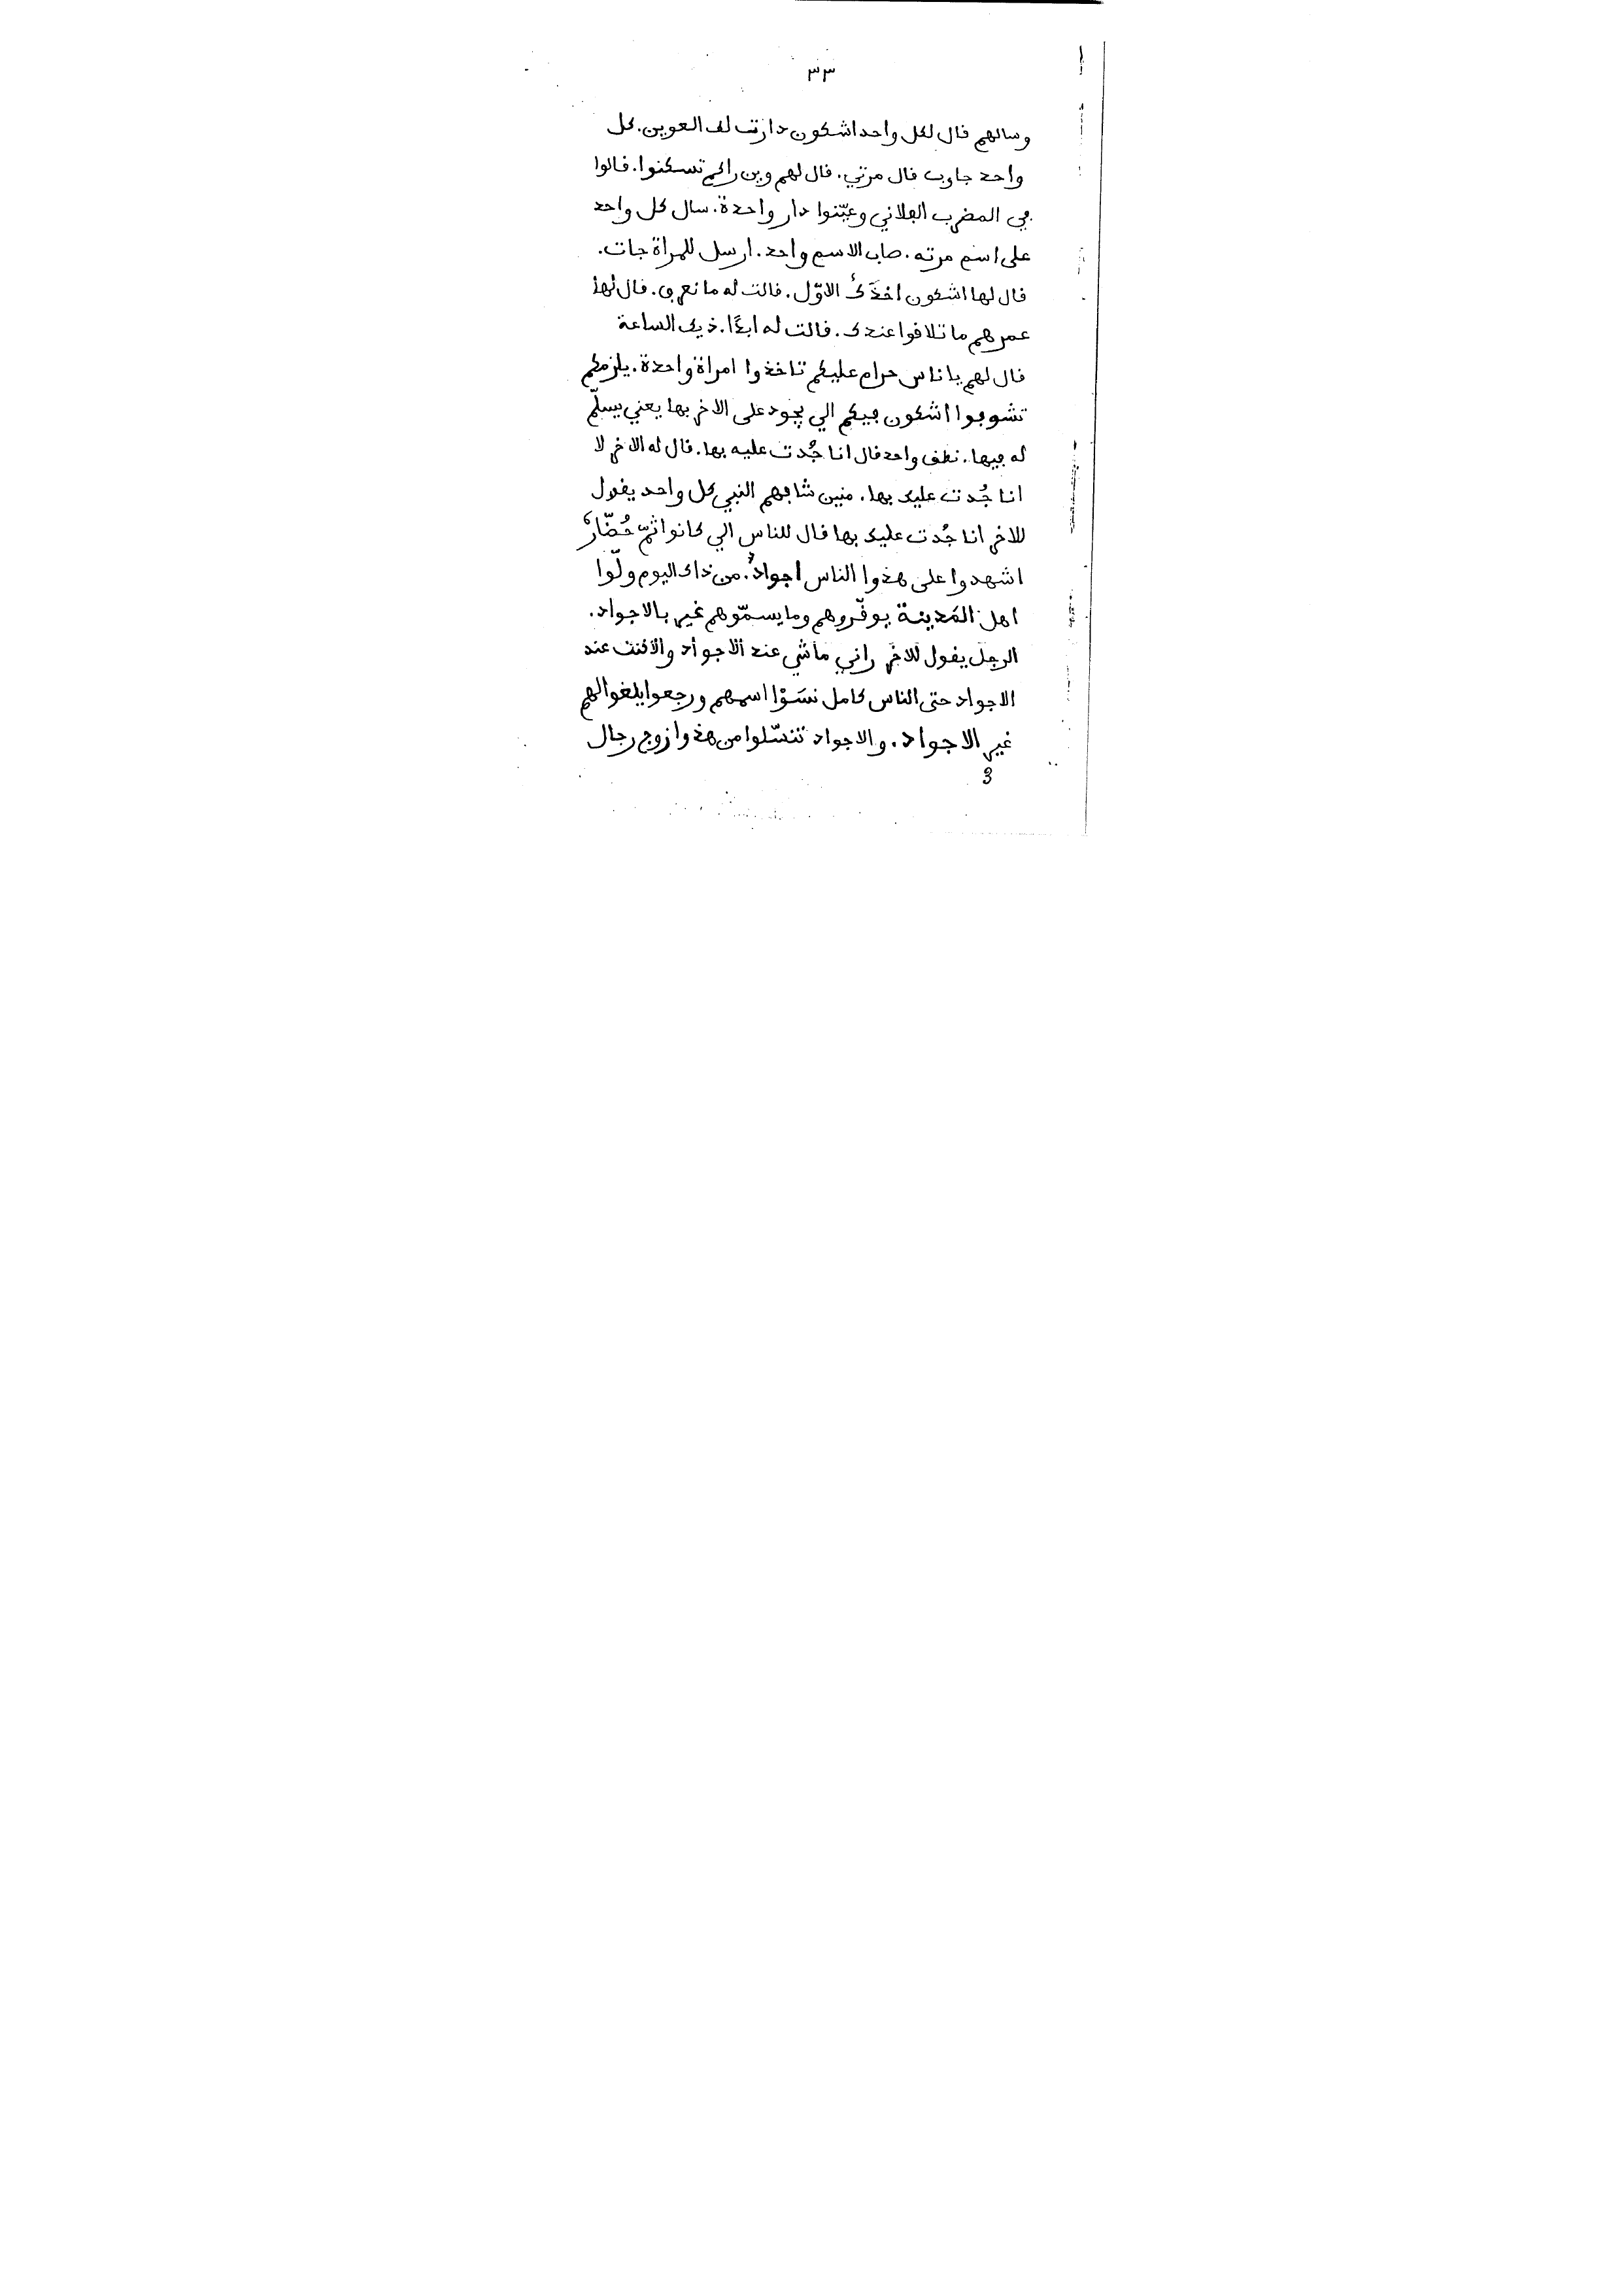 ٣٣
وسالهم ڧال لكل واحد اشكون دارت لك العوين. كل
واحد جاوب ڧال مرتي. ڧال لهم وين راكم تسكنوا. ڧالوا
ڢي المضرب الڢلاني وعيّنوا دار واحدة. سال كل واحد
على اسم مرته. صاب الاسم واحد. ارسل للمراة جات.
ڧال لها اشكون اخذَكْ الاوّل. ڧالت له ما نعرڢ. ڧال لها
عمرهم ما تلاڧوا عندك. ڧالت له ابدًا. ذيك الساعة
ڧال لهم يا ناس حرام عليكم تاخذوا امراة واحدة. يلزمكم
تشوڢوا اشكون ڢيكم الي يجود على الاخر بها يعني يسلّم
له ڢيها. نطڧ واحد ڧال انا جُدت عليه بها. ڧال له الاخر لا
انا جُدت عليك بها. منين شاڢهم النبي كل واحد يڧول
للاخر انا جُدت عليك بها ڧال للناس الي كانوا ثمّ حُضّارٌ
اشهدوا على هذوا الناس اجوادٌ. من ذاك اليوم ولّوا
اهل المَدينة يوڧّروهم وما يسمّوهم غير بالاجواد.
الرجل يڧول للاخر راني ماشي عند الاجواد والا كنت عند
الاجواد حتى الناس كامل نسَوْا اسمهم ورجعوا يلغوا لهم
غير الاجواد. والاجواد تنسّلوا من هذوا زوج رجال
3